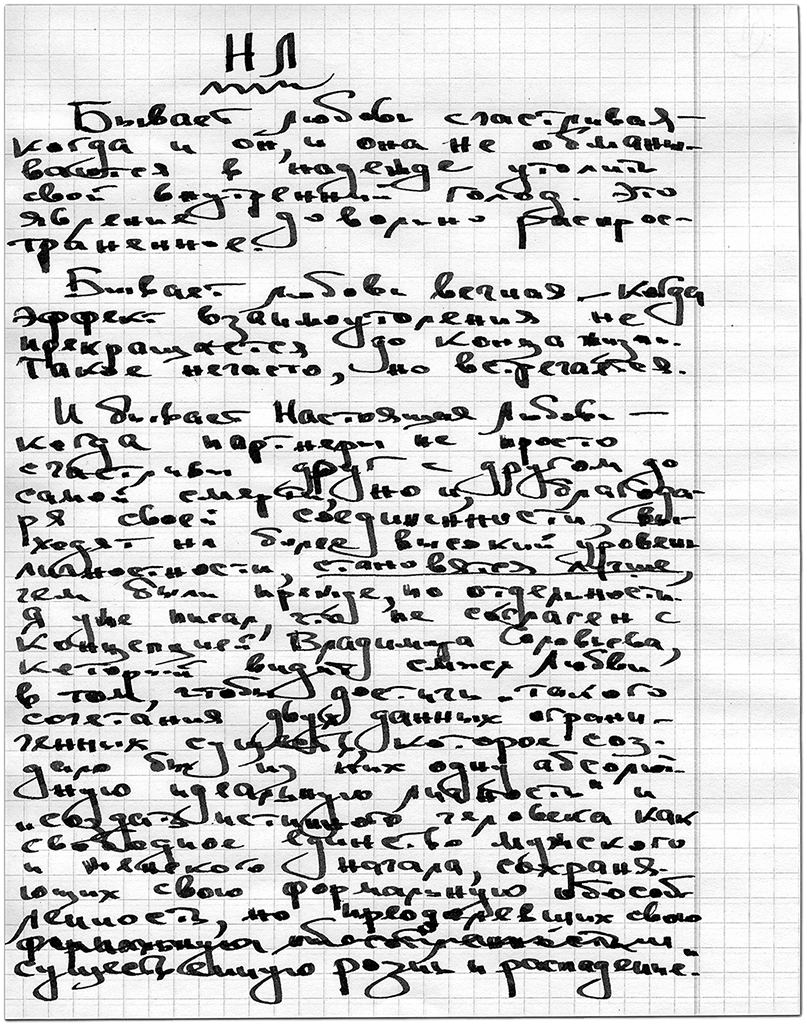 НЛ
Бывает любовь счастливая –
когда и он, и она не обманы-
ваются в надежде утолить
свой внутренний голод. Это
явление довольно распрос-
траненное.
Бывает любовь вечная – когда
эффект взаимоутоления не
прекращается до конца жизни.
Такое нечасто, но встречается.
И бывает Настоящая Любовь –
когда партнеры не просто
счастливы друг с другом до
самой смерти, но и, благода-
ря своей соединенности, вы-
ходят на более высокий уровень
личностности, становятся лучше,
чем были прежде, по отдельности.
Я уже писал, что не согласен с
концепцией Владимира Соловьева,
который видит смысл Любви
в том, чтобы достичь „такого
сочетания двух данных ограни-
ченных существ, которое соз-
дало бы из них одну абсолют-
ную идеальную личность" и
„создать истинного человека как
свободное единство мужского
и женского начала, сохраня-
ющих свою формальную обособ-
ленность, но преодолевших свою
существенную рознь и распадение."